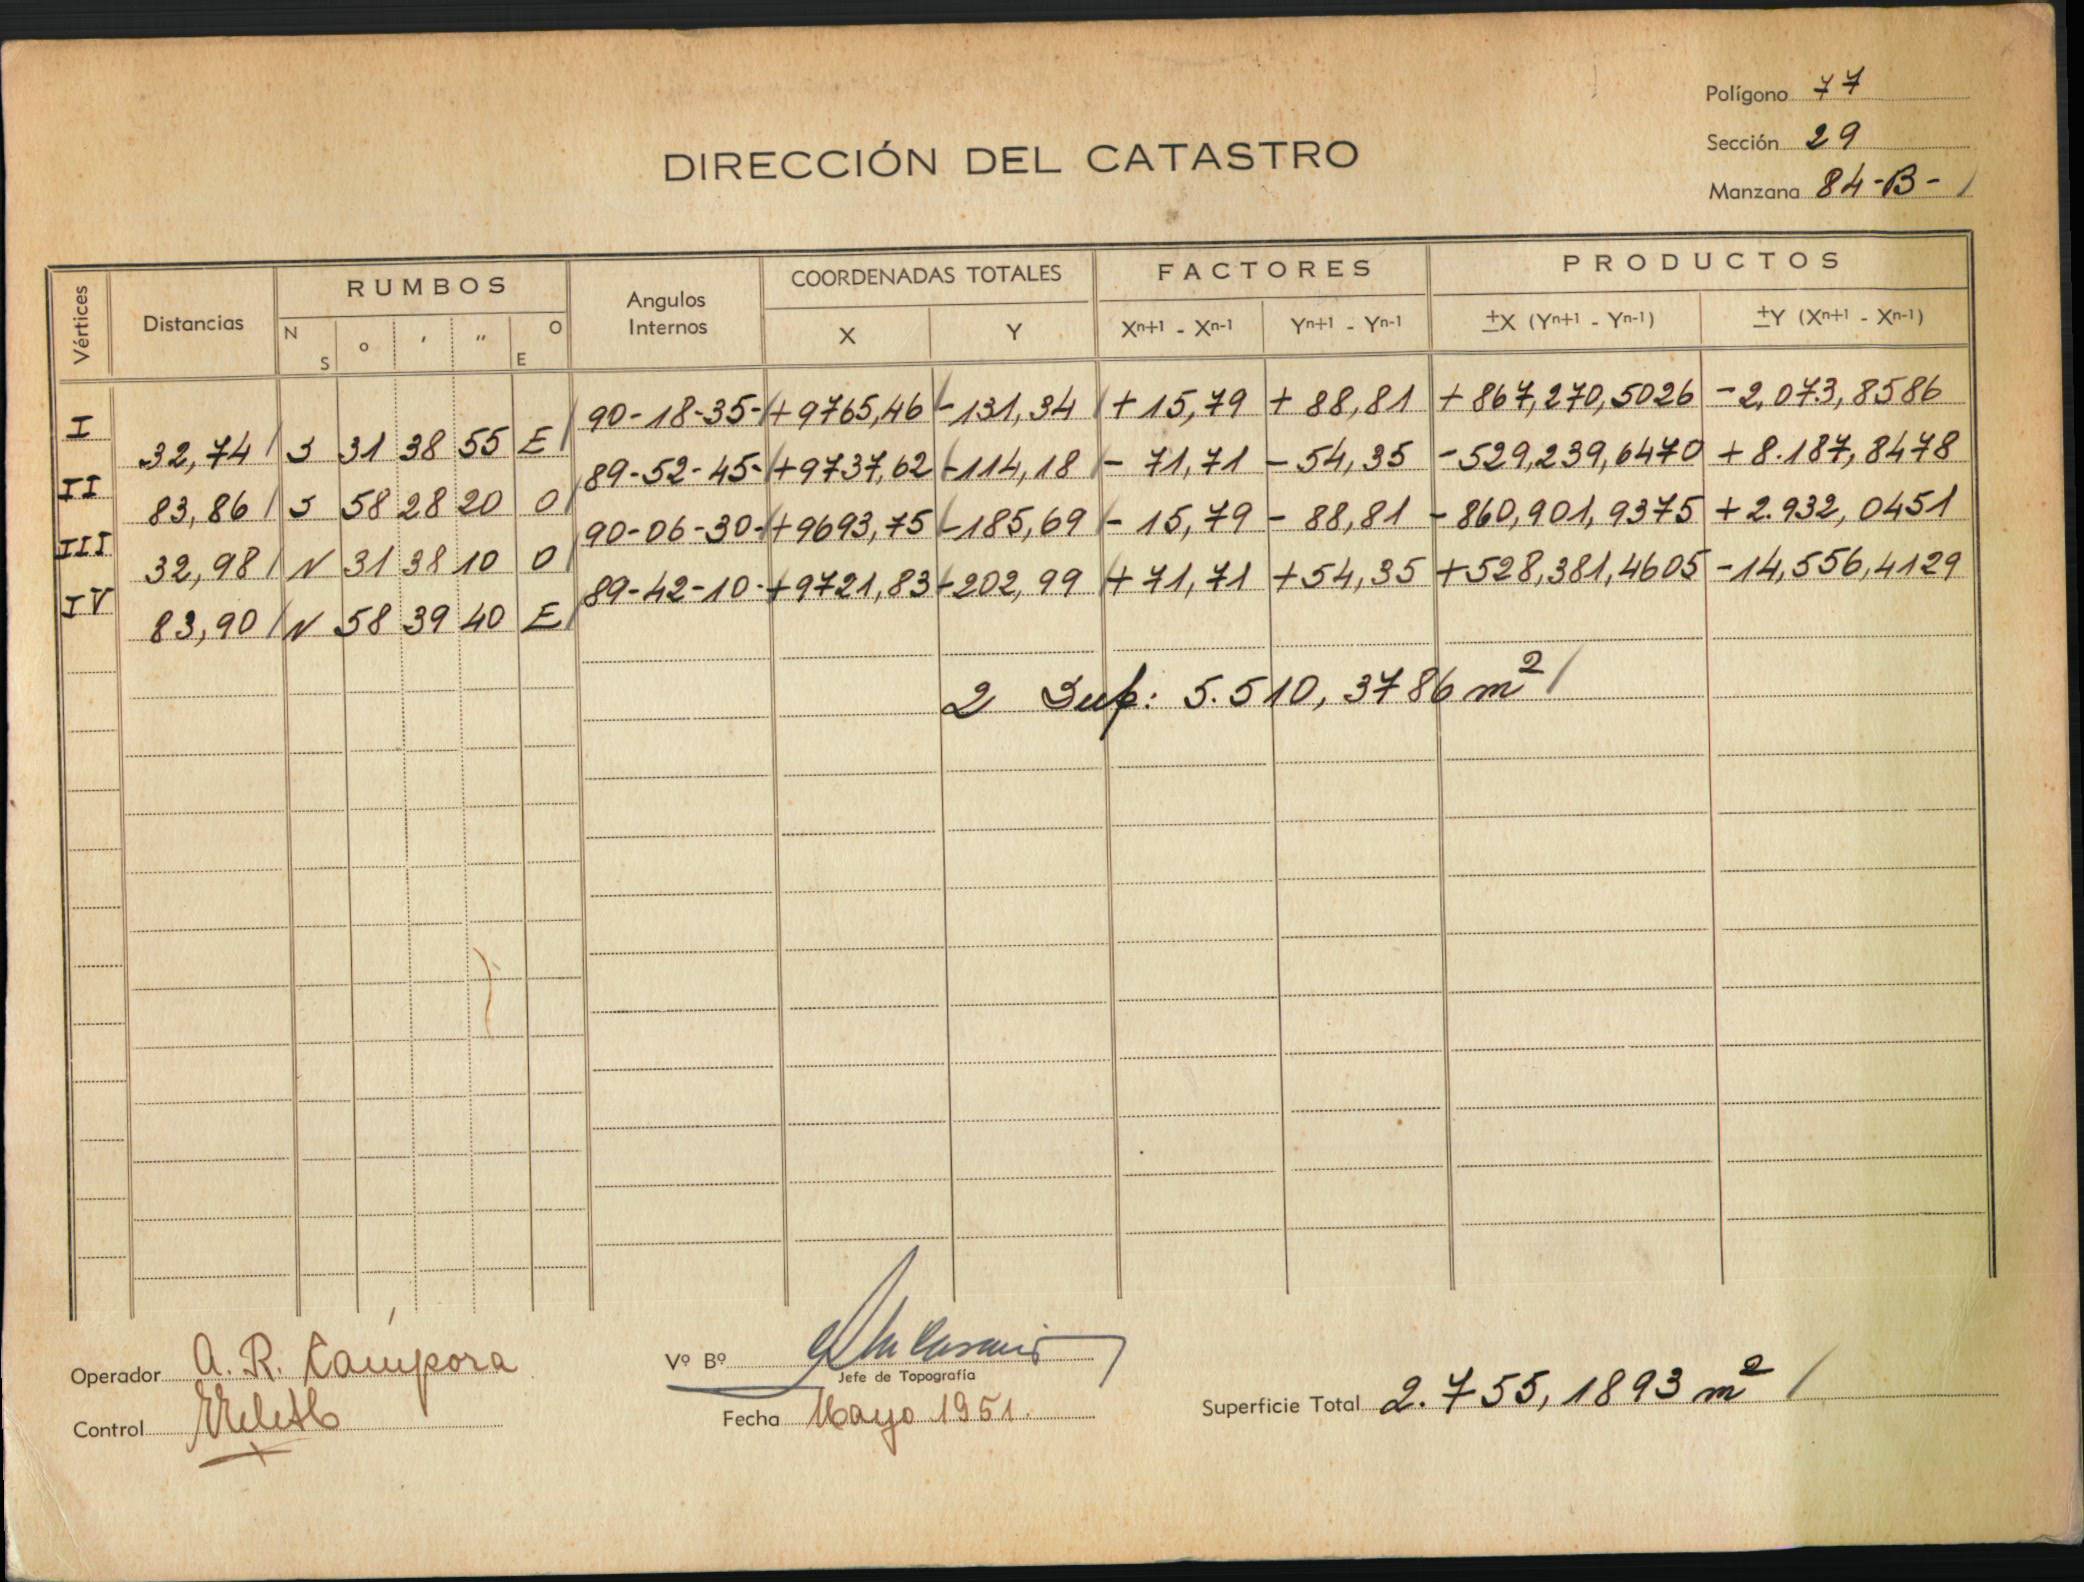 Polígono 77
Sección 29
Manzana 84-B-
DIRECCIÓN DEL CATASTRO
Vértices Distancias RUMBOS Angulos Internos COORDENADAS TOTALES FACTORES PRODUCTOS
N S ° ' " E O X Y Xn+1 - Xn-1 Yn+1 - Yn-1 ±X (Yn+1 - Yn-1) ±Y (Xn+1 - Xn-1)
I 90-18-35- +9765,46 -131,34 +15,79 +88,81 +867,270,5026 -2,073,8586
32,74 S 31 38 55 E
II 89-52-45- +9737,62 -114,18 -71,71 -54,35 -529,239,6470 +8.187,8478
83,86 S 58 28 20 O
III 90-06-30- +9693,75 -185,69 -15,79 -88,81 -860,901,9375 +2.932,0451
32,98 N 31 38 10 O
IV 89-42-10- +9721,83 -202,99 +71,71 +54,35 +528,381,4605 -14,556,4129
83,90 N 58 39 40 E
2 Sup: 5.510,3786 m²
Operador A. R. Cámpora
Vº Bº
Jefe de Topografía
Control
Fecha Mayo 1951.
Superficie Total 2.755,1893 m²